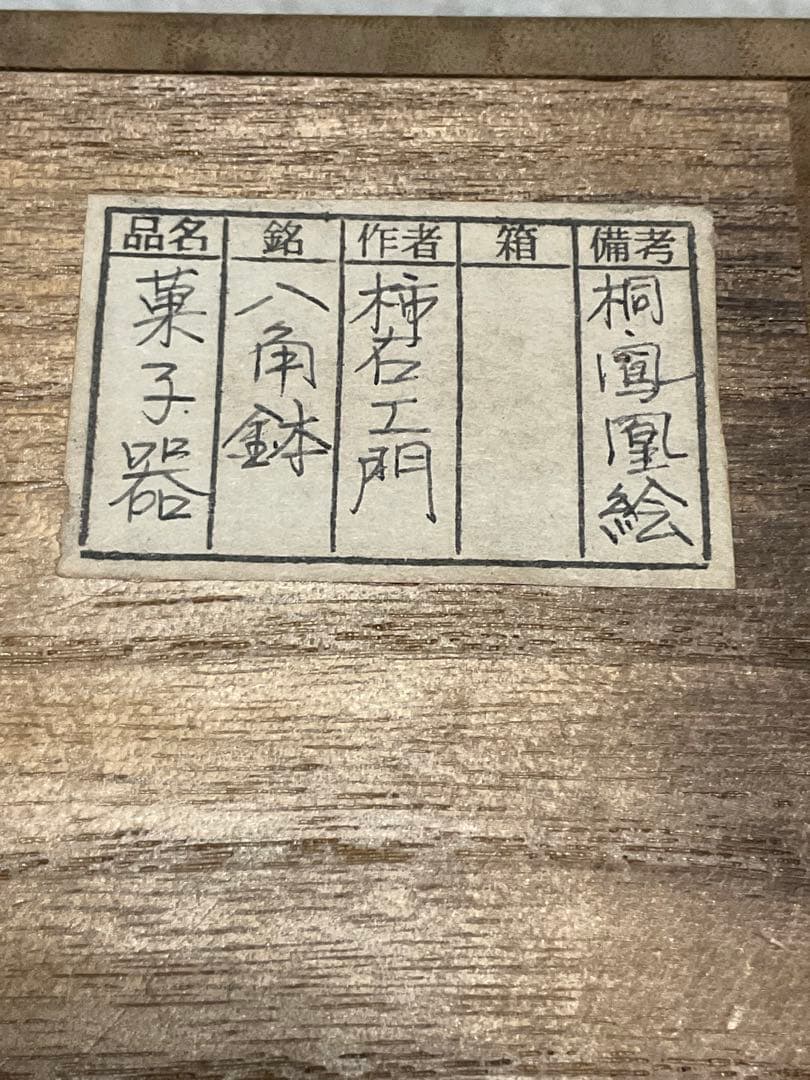 品名
菓子器
銘
八角鉢
作者
柿右エ門
箱
備考
桐・鳳凰絵